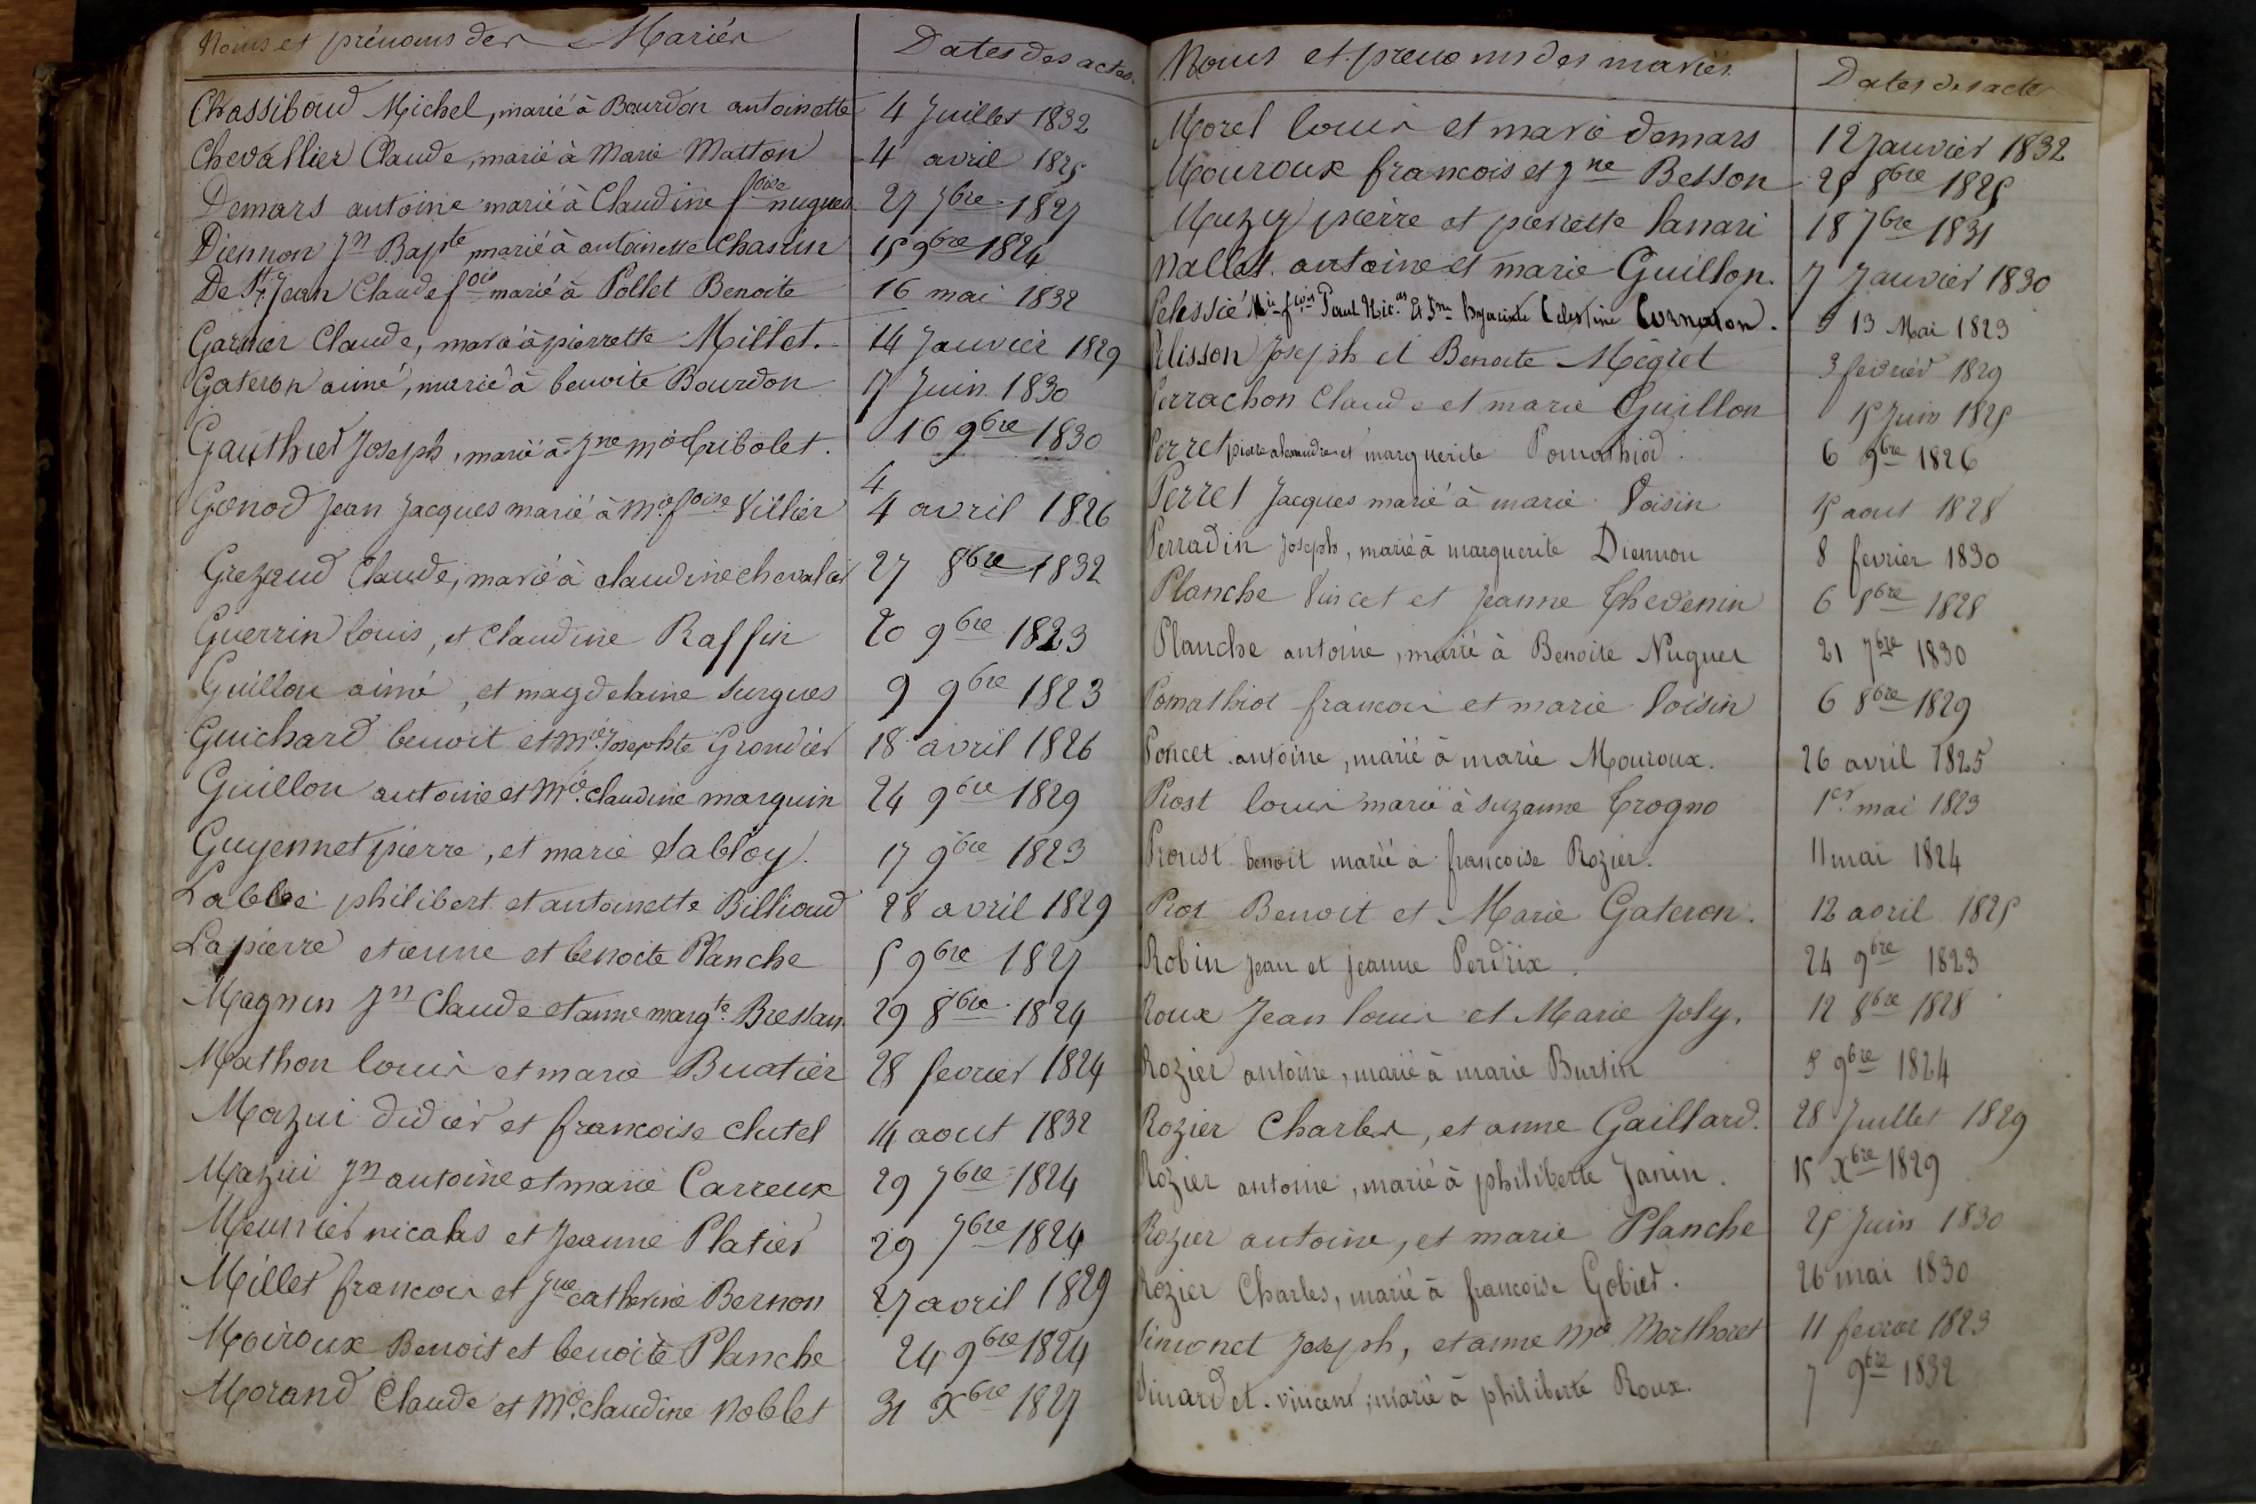 Noms et prénoms des Mariés Dates des actes
Chassiboud Michel, marié à Bourdon antoinette 4 Juillet 1832
Chevallier Claude, marié à Marie Matton 4 avril 1825
Demars antoine marié à Claudine foise nugues 27 7bre 1827
Diennon Jn Bapte marié à antoinette Chastin 15 9bre 1824
De St Jean Claude fois marié à Pollet Benoite 16 mai 1832
Garnier Claude, marié à pierrette Millet. 14 Janvier 1829
Gateron aimé, marié à benoite Bourdon 17 Juin 1830
Gauthier Joseph, marié à Jne mie Tribolet. 16 9bre 1830
4
Genod Jean Jacques marié à Mie foise Villier 4 avril 1826
Grezaud Claude, marié à claudine chevalier 27 8bre 1832
Guerrin Louis, et Claudine Raffin 20 9bre 1823
Guillon aimé, et magdelaine Surgues 9 9bre 1823
Guichard benoit et Mie Josephte Grondier 18 avril 1826
Guillon antoine et Mie claudine marguin 24 9bre 1829
Guyennet pierre, et marie Sabloy. 17 9bre 1823
Lablée philibert et antoinette Billioud 28 avril 1829
Lapierre etienne et benoite Planche 5 9bre 1827
Magnin Jn Claude et anne margte Bressan 29 8bre 1824
Mathon louis et marie Buatier 28 fevrier 1824
Mazui didier et francoise chutel 14 aout 1832
Mazui Jn antoine et marie Carreux 29 7bre 1824
Meunier nicolas et Jeanne Platier 29 7bre 1824
Millet francois et Jne catherine Bernon 27 avril 1829
Moiroux Benoit et benoite Planche 24 9bre 1824
Morand Claude et Mie claudine Noblet 31 Xbre 1827
Noms et prenoms des mariés Dates des actes
Morel louis et marie demars 12 Janvier 1832
Mouroux francois et Jne Besson 25 8bre 1825
Muzy pierre et pierrette lanari 18 7bre 1831
Nallet antoine et marie Guillon. 7 Janvier 1830
Pelissié Mie fcois Paul Nic.as Et Jne hyacinte Celestine Cornaton. 13 Mai 1823
Pelisson Joseph et Benoite Mégret 3 fevrier 1829
Perrachon Claude et marie Guillon 15 Juin 1825
Perret pierre alexandre et marguerite Pomathiod. 6 9bre 1826
Perret Jacques marié à marie Voisin 15 aout 1828
Perradin Joseph, marié à marguerite Diennon 8 fevrier 1830
Planche Vincet et Jeanne Thevenin 6 8bre 1828
Planche antoine, marié à Benoite Nugues 21 7bre 1830
Pomathiot francois et marie Voisin 6 8bre 1829
Poncet antoine, marié à marie Mouroux. 26 avril 1825
Prost louis marié à suzanne Trogno 1er mai 1823
Proust benoit marié à francoise Rozier. 11 mai 1824
Prot Benoit et Marie Gateron. 12 avril 1825
Robin Jean et Jeanne Perdrix. 24 9bre 1823
Roux Jean louis et Marie Joly. 12 8bre 1828
Rozier antoine, marié à marie Burtin 5 9bre 1824
Rozier Charles, et anne Gaillard. 28 Juillet 1829
Rozier antoine, marié à philiberte Janin. 15 Xbre 1829
Rozier antoine, et marie Planche 25 Juin 1830
Rozier Charles, marié à francoise Gobier. 26 mai 1830
Simonet Joseph, et anne Mie Morthoret 11 fevrier 1823
vincent, marié à philiberte Roux. 7 9bre 1832